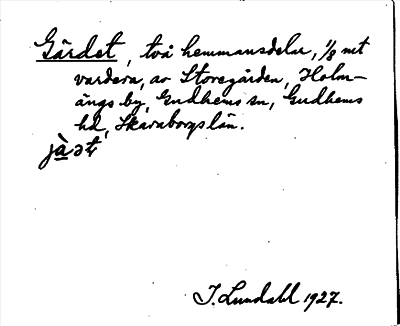 Gärdet, två hemmansdelar, 1/8 mt
vardera, av Storegården, Holm-
ängs by, Gudhems sn, Gudhems
hd, Skaraborgs län.
jàət
I. Lundahl 1927.